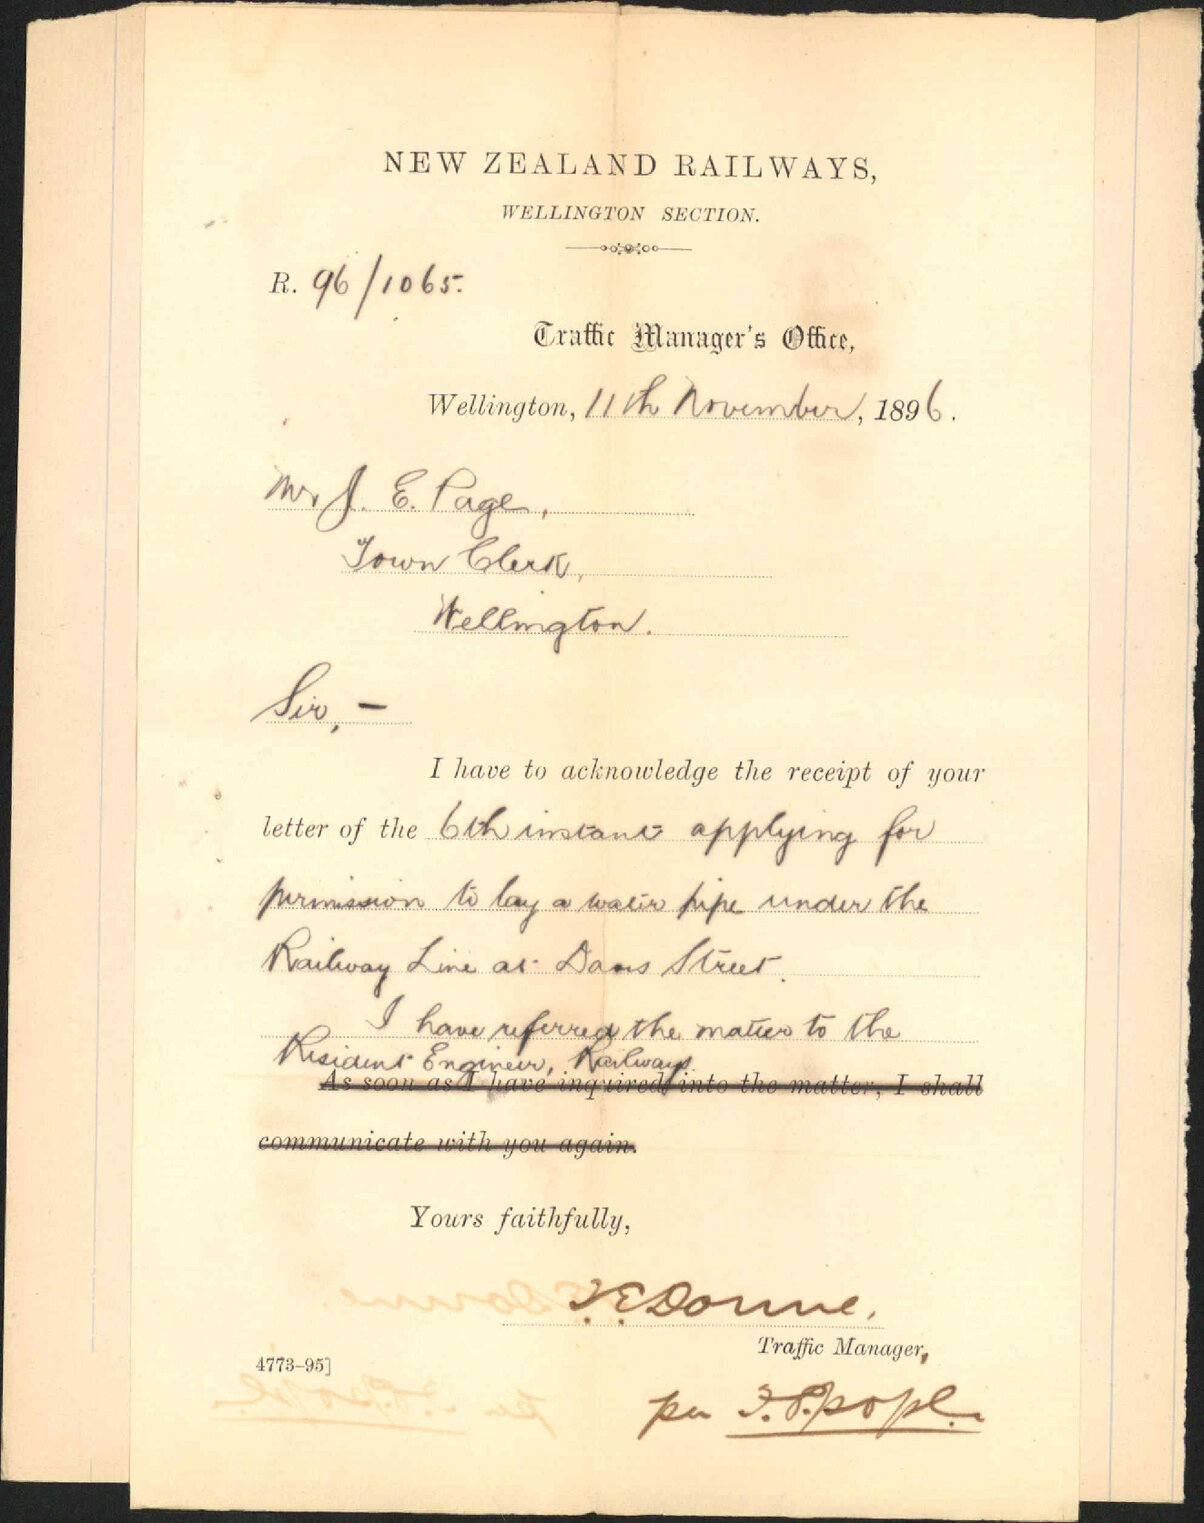 NEW ZEALAND RAILWAYS,
WELLINGTON SECTION.
R. 96/1065.
Traffic Manager's Office,
Wellington, 11th November, 1896.
Mr J. E. Page,
Town Clerk,
Wellington.
Sir, –
I have to acknowledge the receipt of your
letter of the 6th instant applying for
permission to lay a water pipe under the
Railway Line at Davis Street.
I have referred the matter to the
Resident Engineer, Railways
As soon as I have inquired into the matter, I shall
communicate with you again.
Yours faithfully,
T. E. Donne.
Traffic Manager,
4773–95]
per